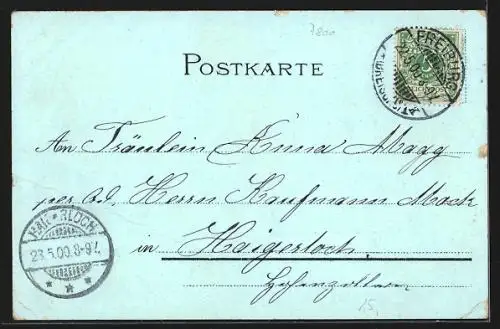 7800
POSTKARTE
FREIBURG
23.5.00.8-9V.
An Fräulein Anna Magg
per ad. Herrn Kaufmann Mock
in Haigerloch.
Hohenzollern
HAIGERLOCH
23.5.00.8-9V.
15,